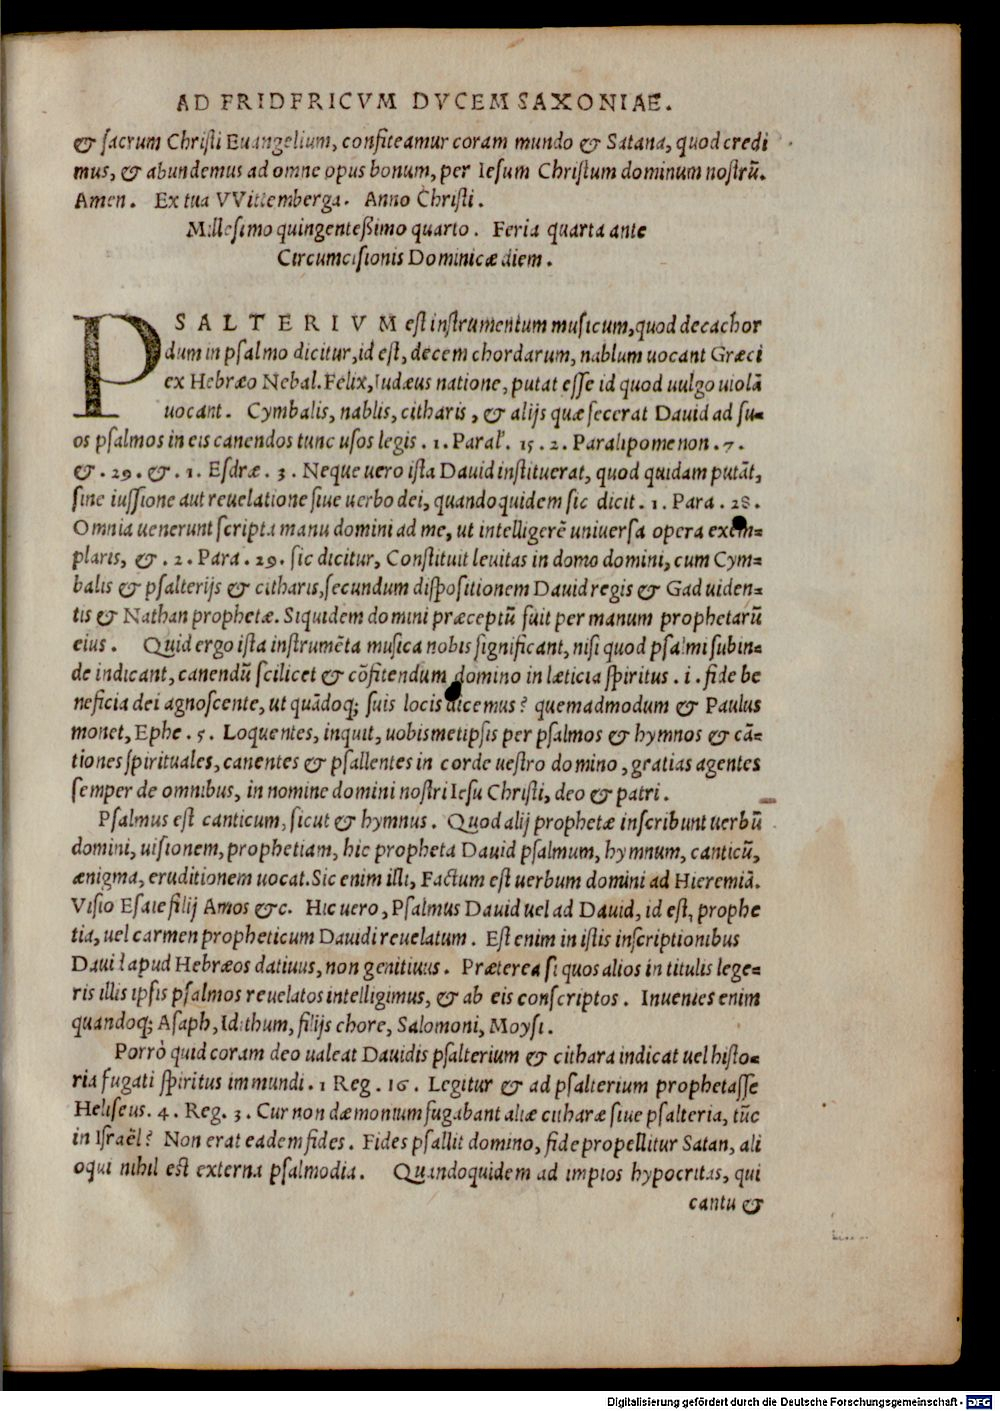 AD FRIDERICVM DVCEM SAXONIAE.
& sacrum Christi Euangelium, confiteamur coram mundo & Satana, quod credi
mus, & abundemus ad omne opus bonum, per Iesum Christum dominum nostrũ.
Amen. Ex tua VVittemberga. Anno Christi.
Millesimo quingenteßimo quarto. Feria quarta ante
Circumcisionis Dominicæ diem.
PSALTERIVM est instrumentum musicum, quod decachor
dum in psalmo dicitur, id est, decem chordarum, nablum uocant Græci
ex Hebræo Nebal. Felix, Iudæus natione, putat esse id quod uulgo uiolã
uocant. Cymbalis, nablis, citharis, & alijs quæ fecerat Dauid ad su=
os psalmos in eis canendos tunc usos legis. 1. Paral. 15. 2. Paralipomenon. 7.
&. 29. &. 1. Esdræ. 3. Neque uero ista Dauid instituerat, quod quidam putãt,
sine iussione aut reuelatione siue uerbo dei, quandoquidem sic dicit. 1. Para. 28.
Omnia uenerunt scripta manu domini ad me, ut intelligerẽ uniuersa opera exem=
plaris, &. 2. Para. 29. sic dicitur, Constituit leuitas in domo domini, cum Cym=
balis & psalterijs & citharis, secundum dispositionem Dauid regis & Gad uiden=
tis & Nathan prophetæ. Siquidem domini præceptũ fuit per manum prophetarũ
eius. Quid ergo ista instrumẽta musica nobis significant, nisi quod psalmi subin=
de indicant, canendũ scilicet & cõfitendum domino in læticia spiritus. i. fide be
neficia dei agnoscente, ut quãdoq; suis locis dicemus? quemadmodum & Paulus
monet, Ephe. 5. Loquentes, inquit, uobismetipsis per psalmos & hymnos & cã=
tiones spirituales, canentes & psallentes in corde uestro domino, gratias agentes
semper de omnibus, in nomine domini nostri Iesu Christi, deo & patri.
Psalmus est canticum, sicut & hymnus. Quod alij prophetæ inscribunt uerbũ
domini, uisionem, prophetiam, hic propheta Dauid psalmum, hymnum, canticũ,
ænigma, eruditionem uocat. Sic enim illi, Factum est uerbum domini ad Hieremiã.
Visio Esaie filij Amos &c. Hic uero, Psalmus Dauid uel ad Dauid, id est, prophe
tia, uel carmen propheticum Dauidi reuelatum. Est enim in istis inscriptionibus
Dauid apud Hebræos datiuus, non genitiuus. Præterea si quos alios in titulis lege=
ris illis ipsis psalmos reuelatos intelligimus, & ab eis conscriptos. Inuenies enim
quandoq; Asaph, Idithum, filijs chore, Salomoni, Moysi.
Porrò quid coram deo ualeat Dauidis psalterium & cithara indicat uel histo=
ria fugati spiritus immundi. 1 Reg. 16. Legitur & ad psalterium prophetasse
Heliseus. 4. Reg. 3. Cur non dæmonium fugabant aliæ citharæ siue psalteria, tũc
in Israël? Non erat eadem fides. Fides psallit domino, fide propellitur Satan, ali
oqui nihil est externa psalmodia. Quandoquidem ad impios hypocritas, qui
cantu &
Digitalisierung gefördert durch die Deutsche Forschungsgemeinschaft - DFG